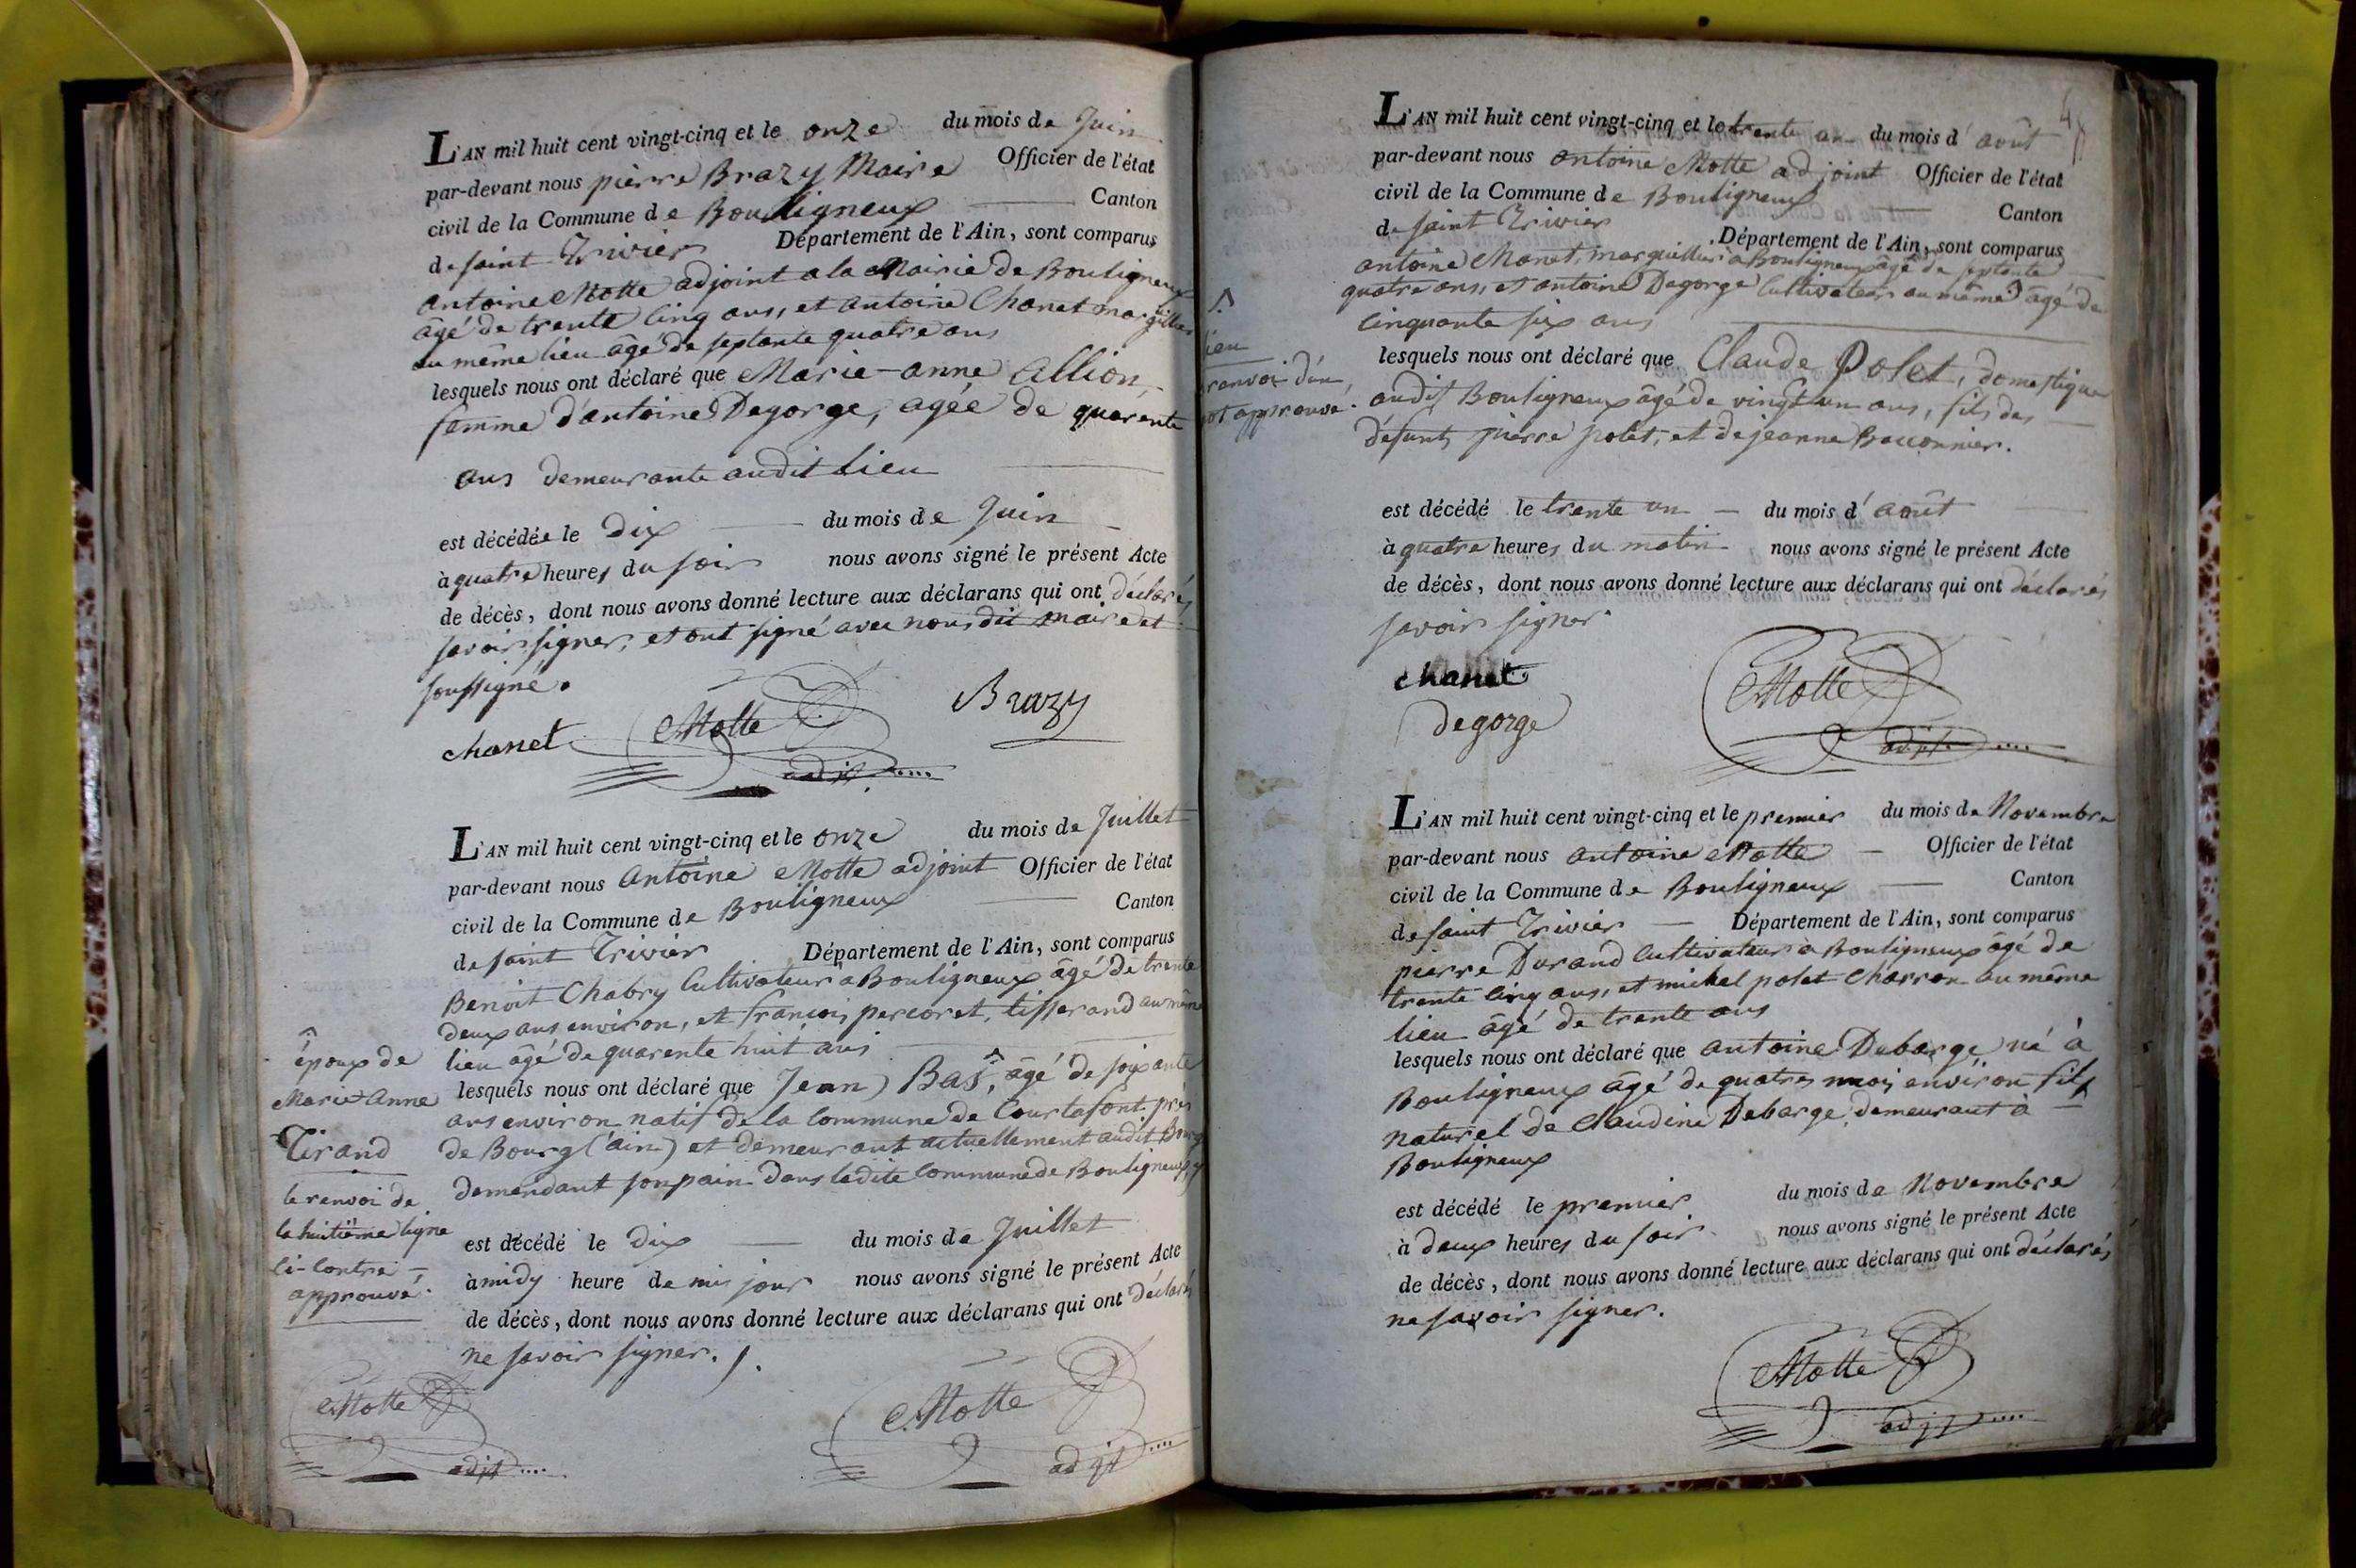 L'AN mil huit cent vingt-cinq et le onze du mois de Juin
par-devant nous pierre Brazy Maire Officier de l'état
civil de la Commune de Bouligneux Canton
de saint Trivier Département de l'Ain, sont comparus
antoine Motte adjoint a la Mairie de Bouligneux
âgé de trente cinq ans, et antoine Chanet margillier
au même lieu âgé de septante quatre ans
lesquels nous ont déclaré que Marie-anne Allion
femme d'antoine Degorge, agée de quarente
ans demeurante audit lieu
est décédée le Dix du mois de Juin
à quatre heures du soir nous avons signé le présent Acte
de décès, dont nous avons donné lecture aux déclarans qui ont déclarés
savoir signer, et ont signé avec nous dit maire et
soussigné.
chanet Motte adjt. Brazy
L'AN mil huit cent vingt-cinq et le onze du mois de Juillet
par-devant nous Antoine Motte adjoint Officier de l'état
civil de la Commune de Bouligneux Canton
de saint Trivier Département de l'Ain, sont comparus
Benoit Chabry Cultivateur à Bouligneux âgé de trente
deux ans environ, et francois percoret, tisserand au même
lieu âgé de quarente huit ans
lesquels nous ont déclaré que Jean Bas, âgé de soixante
ans environ natif de la Commune de Courtafont près
de Bourg (ain) et demeurant actuellement audit Bourg
demandant son pain dans ladite commune de Bouligneux, y
est décédé le Dix du mois de Juillet
à midy heure de mis jour nous avons signé le présent Acte
de décès, dont nous avons donné lecture aux déclarans qui ont déclarés
ne savoir signer.
époux de
Marie Anne
Tirand
le renvoi de
la huitième ligne
ci-contre
approuvé.
Motte adjt
Motte adjt
L'AN mil huit cent vingt-cinq et le trente un du mois d'août
par-devant nous antoine Motte adjoint Officier de l'état
civil de la Commune de Bouligneux Canton
de saint Trivier Département de l'Ain, sont comparus
antoine Chanet, marguillier à Bouligneux âgé de septante
quatre ans, et antoine Degorge Cultivateur au même âgé de
cinquante six ans
lesquels nous ont déclaré que Claude Polet, domestique
audit Bouligneux âgé de vingt un ans, fils des
défunts pierre polet, et de jeanne Bouonnier.
est décédé le trente un du mois d'août
à quatre heures du matin nous avons signé le présent Acte
de décès, dont nous avons donné lecture aux déclarans qui ont déclarés
savoir signer
lieu
renvoi d'un
mot approuvé.
chanet
degorge
Motte adjt
L'AN mil huit cent vingt-cinq et le premier du mois de Novembre
par-devant nous antoine Motte Officier de l'état
civil de la Commune de Bouligneux Canton
de saint Trivier Département de l'Ain, sont comparus
pierre Durand Cultivateur à Bouligneux âgé de
trente cinq ans, et michel polet Charron au même
lieu âgé de trente ans
lesquels nous ont déclaré que antoine Debarge né à
Bouligneux âgé de quatres mois environ fils
naturel de Claudine Debarge, demeurant à
Bouligneux
est décédé le premier du mois de Novembre
à deux heures du soir nous avons signé le présent Acte
de décès, dont nous avons donné lecture aux déclarans qui ont déclarés
ne savoir signer.
Motte adjt